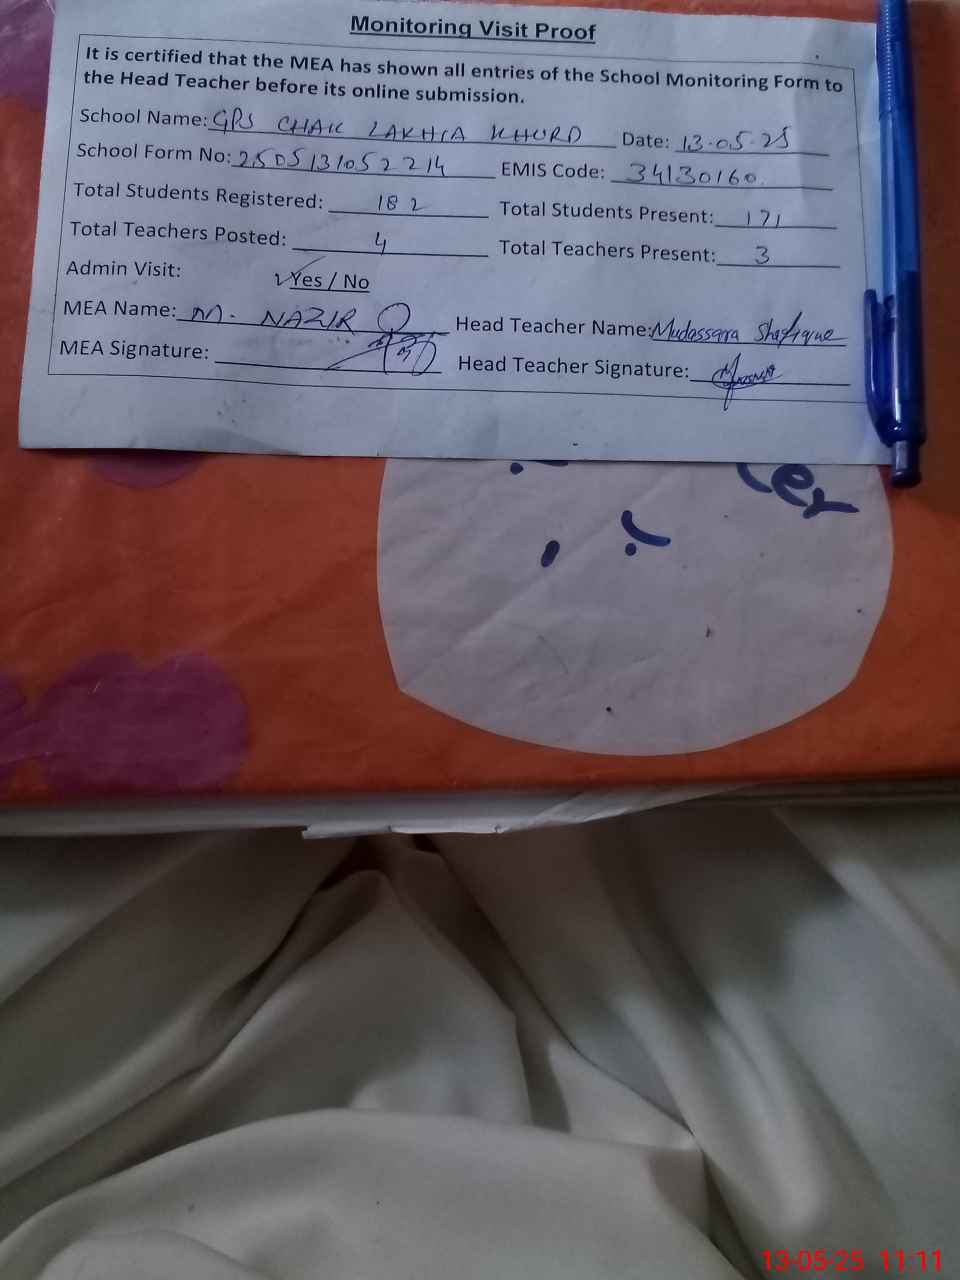 Monitoring Visit Proof
It is certified that the MEA has shown all entries of the School Monitoring Form to
the Head Teacher before its online submission.
School Name: GPS CHAK LAKHIA KHURD Date: 13.05.25
School Form No: 2505131052214 EMIS Code: 34130160
Total Students Registered: 182 Total Students Present: 171
Total Teachers Posted: 4 Total Teachers Present: 3
Admin Visit: Yes / No
MEA Name: M. NAZIR Head Teacher Name: Mudassara Shafique
MEA Signature: Head Teacher Signature:
13-05-25 11:11